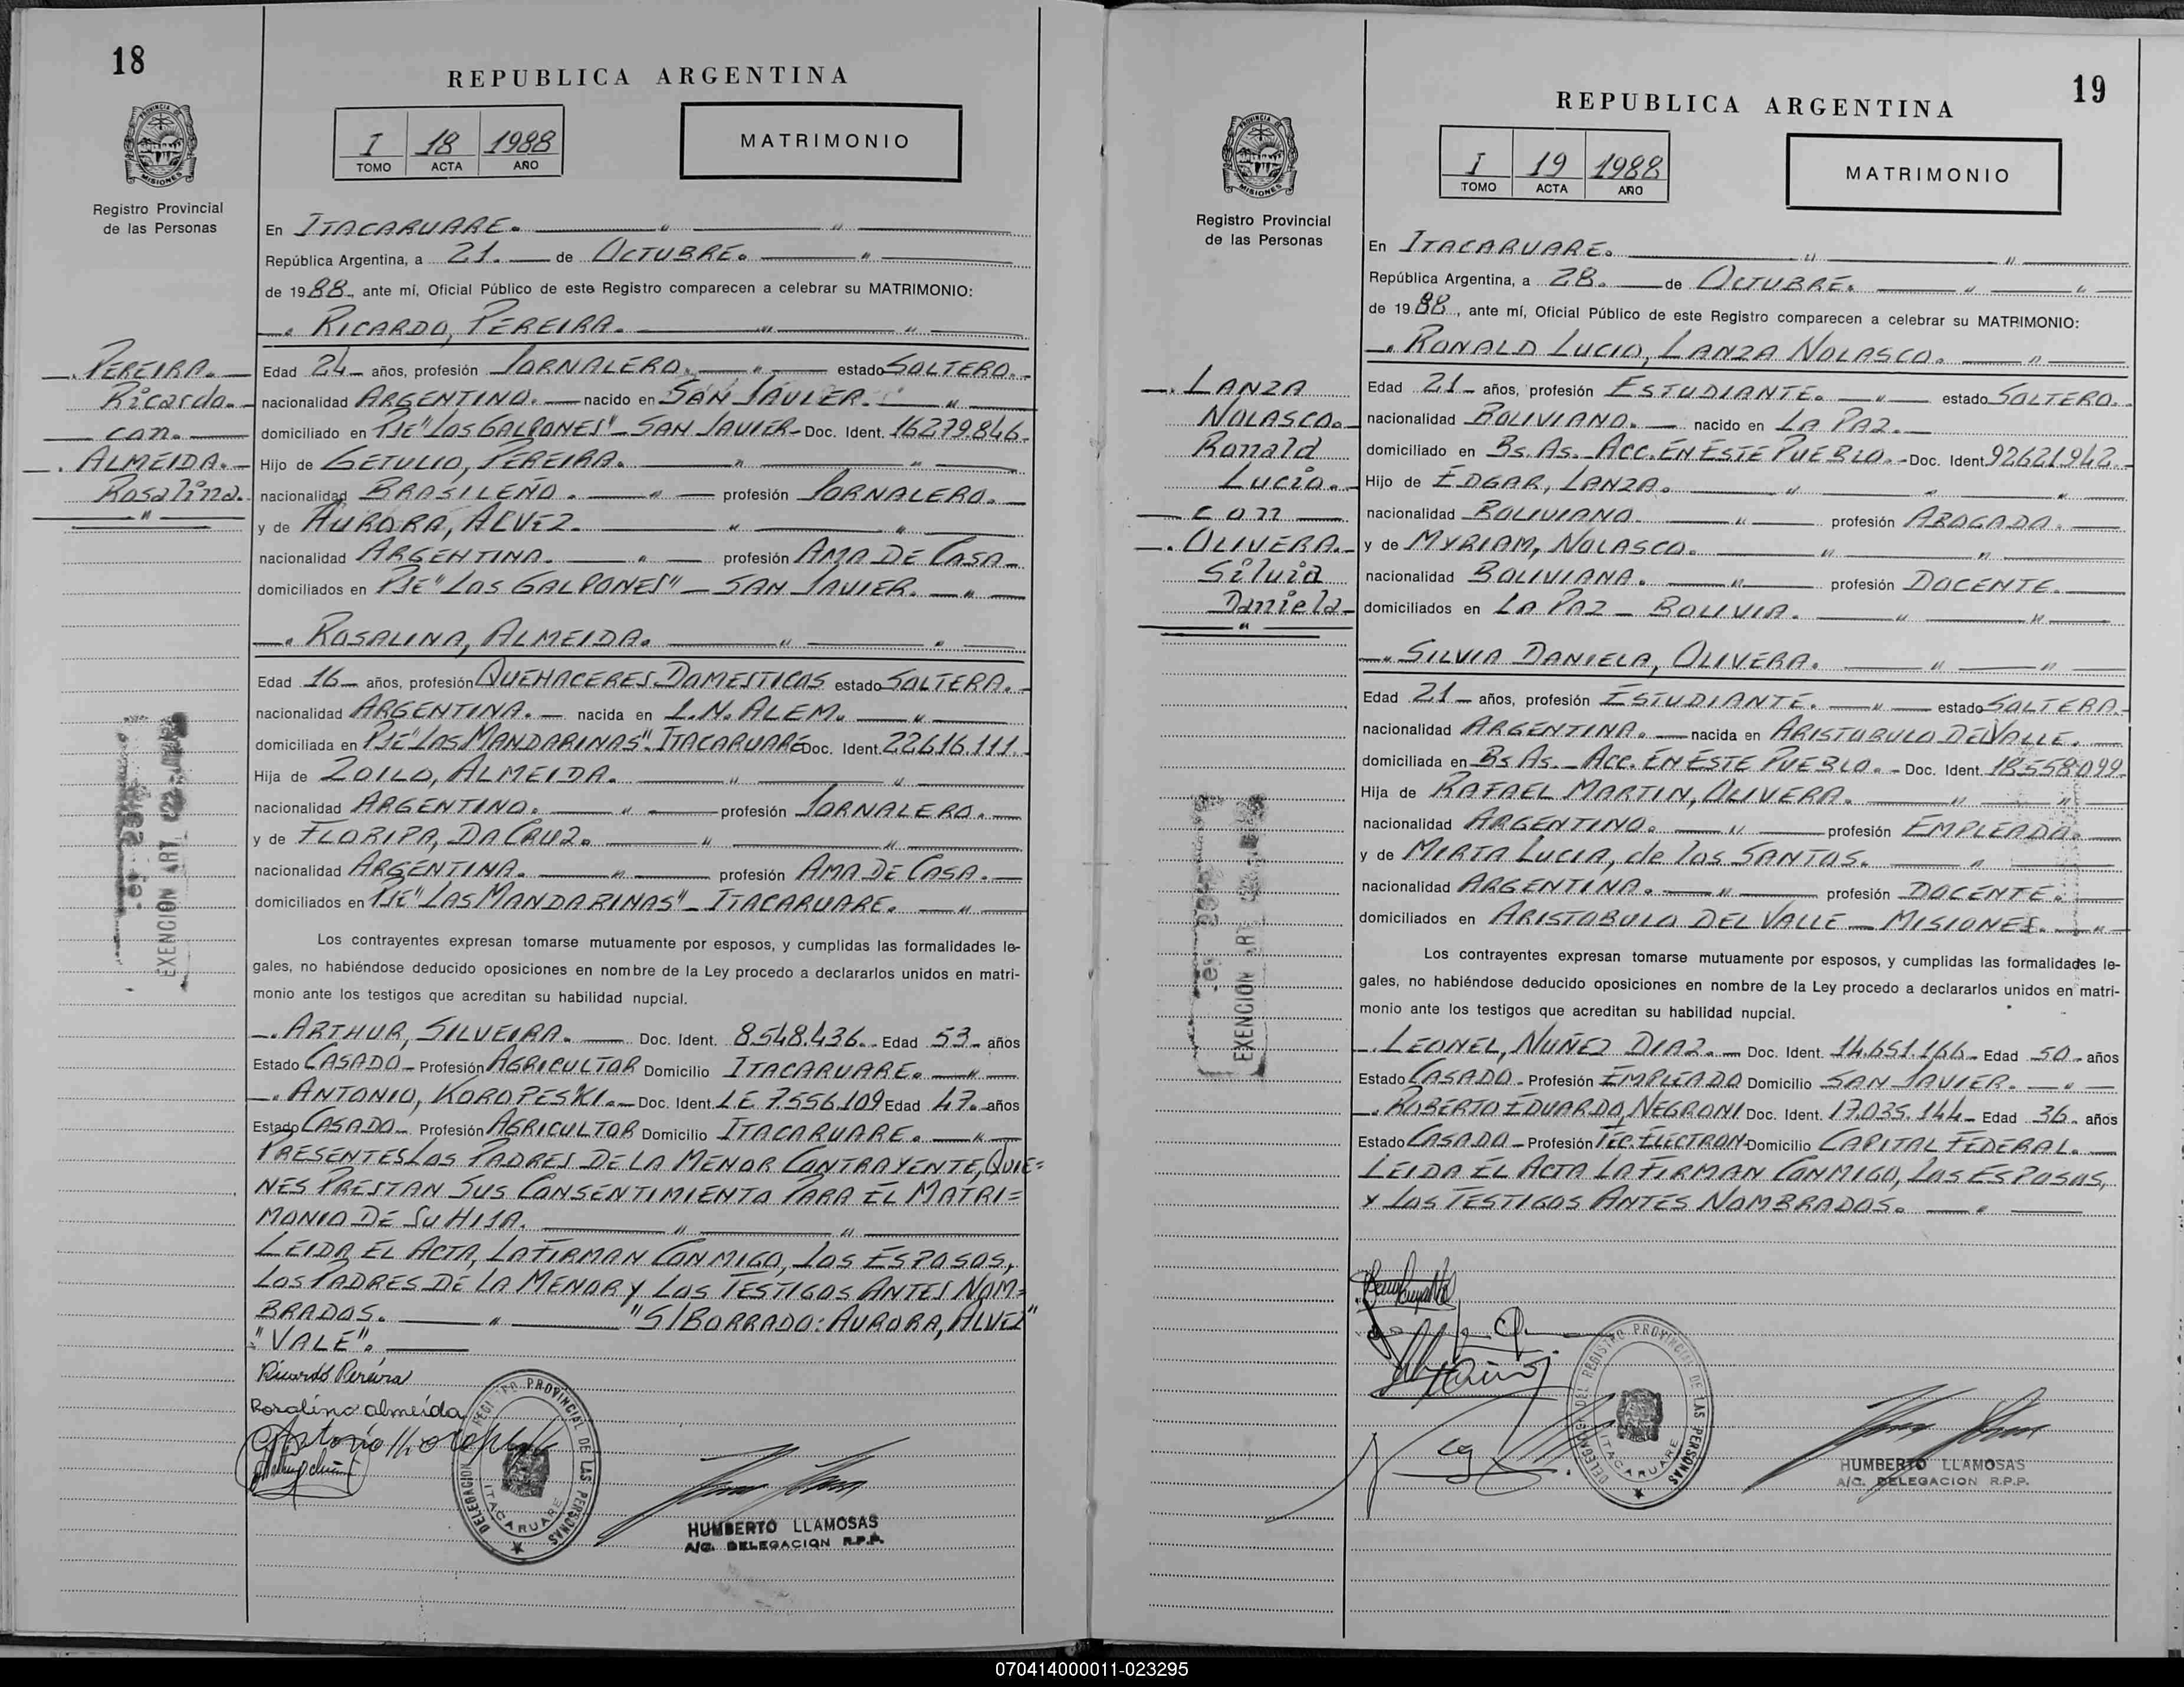 18
REPUBLICA ARGENTINA
I 18 1988
TOMO ACTA AÑO
MATRIMONIO
PROVINCIA DE MISIONES
Registro Provincial
de las Personas
En ITACARUARE.
República Argentina, a 21. de OCTUBRE.
de 1988., ante mí, Oficial Público de este Registro comparecen a celebrar su MATRIMONIO:
RICARDO, PEREIRA.
PEREIRA.
Ricardo.
con.
ALMEIDA.
Rosalina.
Edad 24 años, profesión JORNALERO. estado SOLTERO.
nacionalidad ARGENTINO. nacido en SAN JAVIER.
domiciliado en PJE "LOS GALPONES" - SAN JAVIER - Doc. Ident. 16279846.
Hijo de GETULIO, PEREIRA.
nacionalidad BRASILEÑO. profesión JORNALERO.
y de AURORA, ALVEZ.
nacionalidad ARGENTINA. profesión AMA DE CASA
domiciliados en PJE "LOS GALPONES" - SAN JAVIER.
ROSALINA, ALMEIDA.
Edad 16 años, profesión QUEHACERES DOMESTICOS estado SOLTERA.
nacionalidad ARGENTINA. nacida en L.N. ALEM.
domiciliada en PJE "LAS MANDARINAS". ITACARUARÉ Doc. Ident. 22616.111.
Hija de ZOILO, ALMEIDA.
nacionalidad ARGENTINO. profesión JORNALERO.
y de FLORIPA, DA CRUZ.
nacionalidad ARGENTINA. profesión AMA DE CASA.
domiciliados en PJE "LAS MANDARINAS" - ITACARUARE.
EXENCION ART
Los contrayentes expresan tomarse mutuamente por esposos, y cumplidas las formalidades le-
gales, no habiéndose deducido oposiciones en nombre de la Ley procedo a declararlos unidos en matri-
monio ante los testigos que acreditan su habilidad nupcial.
ARTHUR, SILVEIRA. Doc. Ident. 8.548.436. Edad 53 años
Estado CASADO - Profesión AGRICULTOR Domicilio ITACARUARE.
ANTONIO, KOROPESKI. Doc. Ident. L.E. 7.556.109 Edad 47. años
Estado CASADO - Profesión AGRICULTOR Domicilio ITACARUARE.
PRESENTES LOS PADRES DE LA MENOR CONTRAYENTE, QUIE=
NES PRESTAN SUS CONSENTIMIENTO PARA EL MATRI=
MONIO DE SU HIJA.
LEIDA EL ACTA, LA FIRMAN CONMIGO, LOS ESPOSOS,
LOS PADRES DE LA MENOR Y LOS TESTIGOS ANTES NOM=
BRADOS. "S/BORRADO: AURORA, ALVEZ"
"VALE".
Ricardo Pereira
Rosalina almeida
DELEGACION REGISTRO PROVINCIAL DE LAS PERSONAS
ITACARUARE
HUMBERTO LLAMOSAS
A/C. DELEGACION R.P.P.
19
REPUBLICA ARGENTINA
I 19 1988
TOMO ACTA AÑO
MATRIMONIO
PROVINCIA DE MISIONES
Registro Provincial
de las Personas
En ITACARUARE.
República Argentina, a 28. de OCTUBRE.
de 1988., ante mí, Oficial Público de este Registro comparecen a celebrar su MATRIMONIO:
RONALD LUCIO, LANZA NOLASCO.
LANZA
NOLASCO.
Ronald
Lucio.
con
OLIVERA.
Silvia
Daniela
Edad 21 años, profesión ESTUDIANTE. estado SOLTERO.
nacionalidad BOLIVIANO. nacido en LA PAZ.
domiciliado en Bs. As. - ACC. EN ESTE PUEBLO. - Doc. Ident. 92621942.
Hijo de EDGAR, LANZA.
nacionalidad BOLIVIANO. profesión ABOGADO.
y de MYRIAM, NOLASCO.
nacionalidad BOLIVIANA. profesión DOCENTE.
domiciliados en LA PAZ - BOLIVIA.
SILVIA DANIELA, OLIVERA.
Edad 21 años, profesión ESTUDIANTE. estado SOLTERA.
nacionalidad ARGENTINA. nacida en ARISTOBULO DEL VALLE.
domiciliada en Bs As. - ACC. EN ESTE PUEBLO. - Doc. Ident. 18.558.099.
Hija de RAFAEL MARTIN, OLIVERA.
nacionalidad ARGENTINO. profesión EMPLEADO.
y de MIRTA LUCIA, de los SANTOS.
nacionalidad ARGENTINA. profesión DOCENTE.
domiciliados en ARISTOBULO DEL VALLE - MISIONES.
EXENCION ART
Los contrayentes expresan tomarse mutuamente por esposos, y cumplidas las formalidades le-
gales, no habiéndose deducido oposiciones en nombre de la Ley procedo a declararlos unidos en matri-
monio ante los testigos que acreditan su habilidad nupcial.
LEONEL, NUÑEZ DIAZ. Doc. Ident. 14.651.166 - Edad 50 años
Estado CASADO. Profesión EMPLEADO Domicilio SAN JAVIER.
ROBERTO EDUARDO, NEGRONI Doc. Ident. 17.035.144 - Edad 36. años
Estado CASADO - Profesión TEC. ELECTRON. Domicilio CAPITAL FEDERAL.
LEIDA EL ACTA LA FIRMAN CONMIGO, LOS ESPOSOS,
Y LOS TESTIGOS ANTES NOMBRADOS.
DELEGACION DEL REGISTRO PROVINCIAL DE LAS PERSONAS
ITACARUARE
HUMBERTO LLAMOSAS
A/C. DELEGACION R.P.P.
070414000011-023295